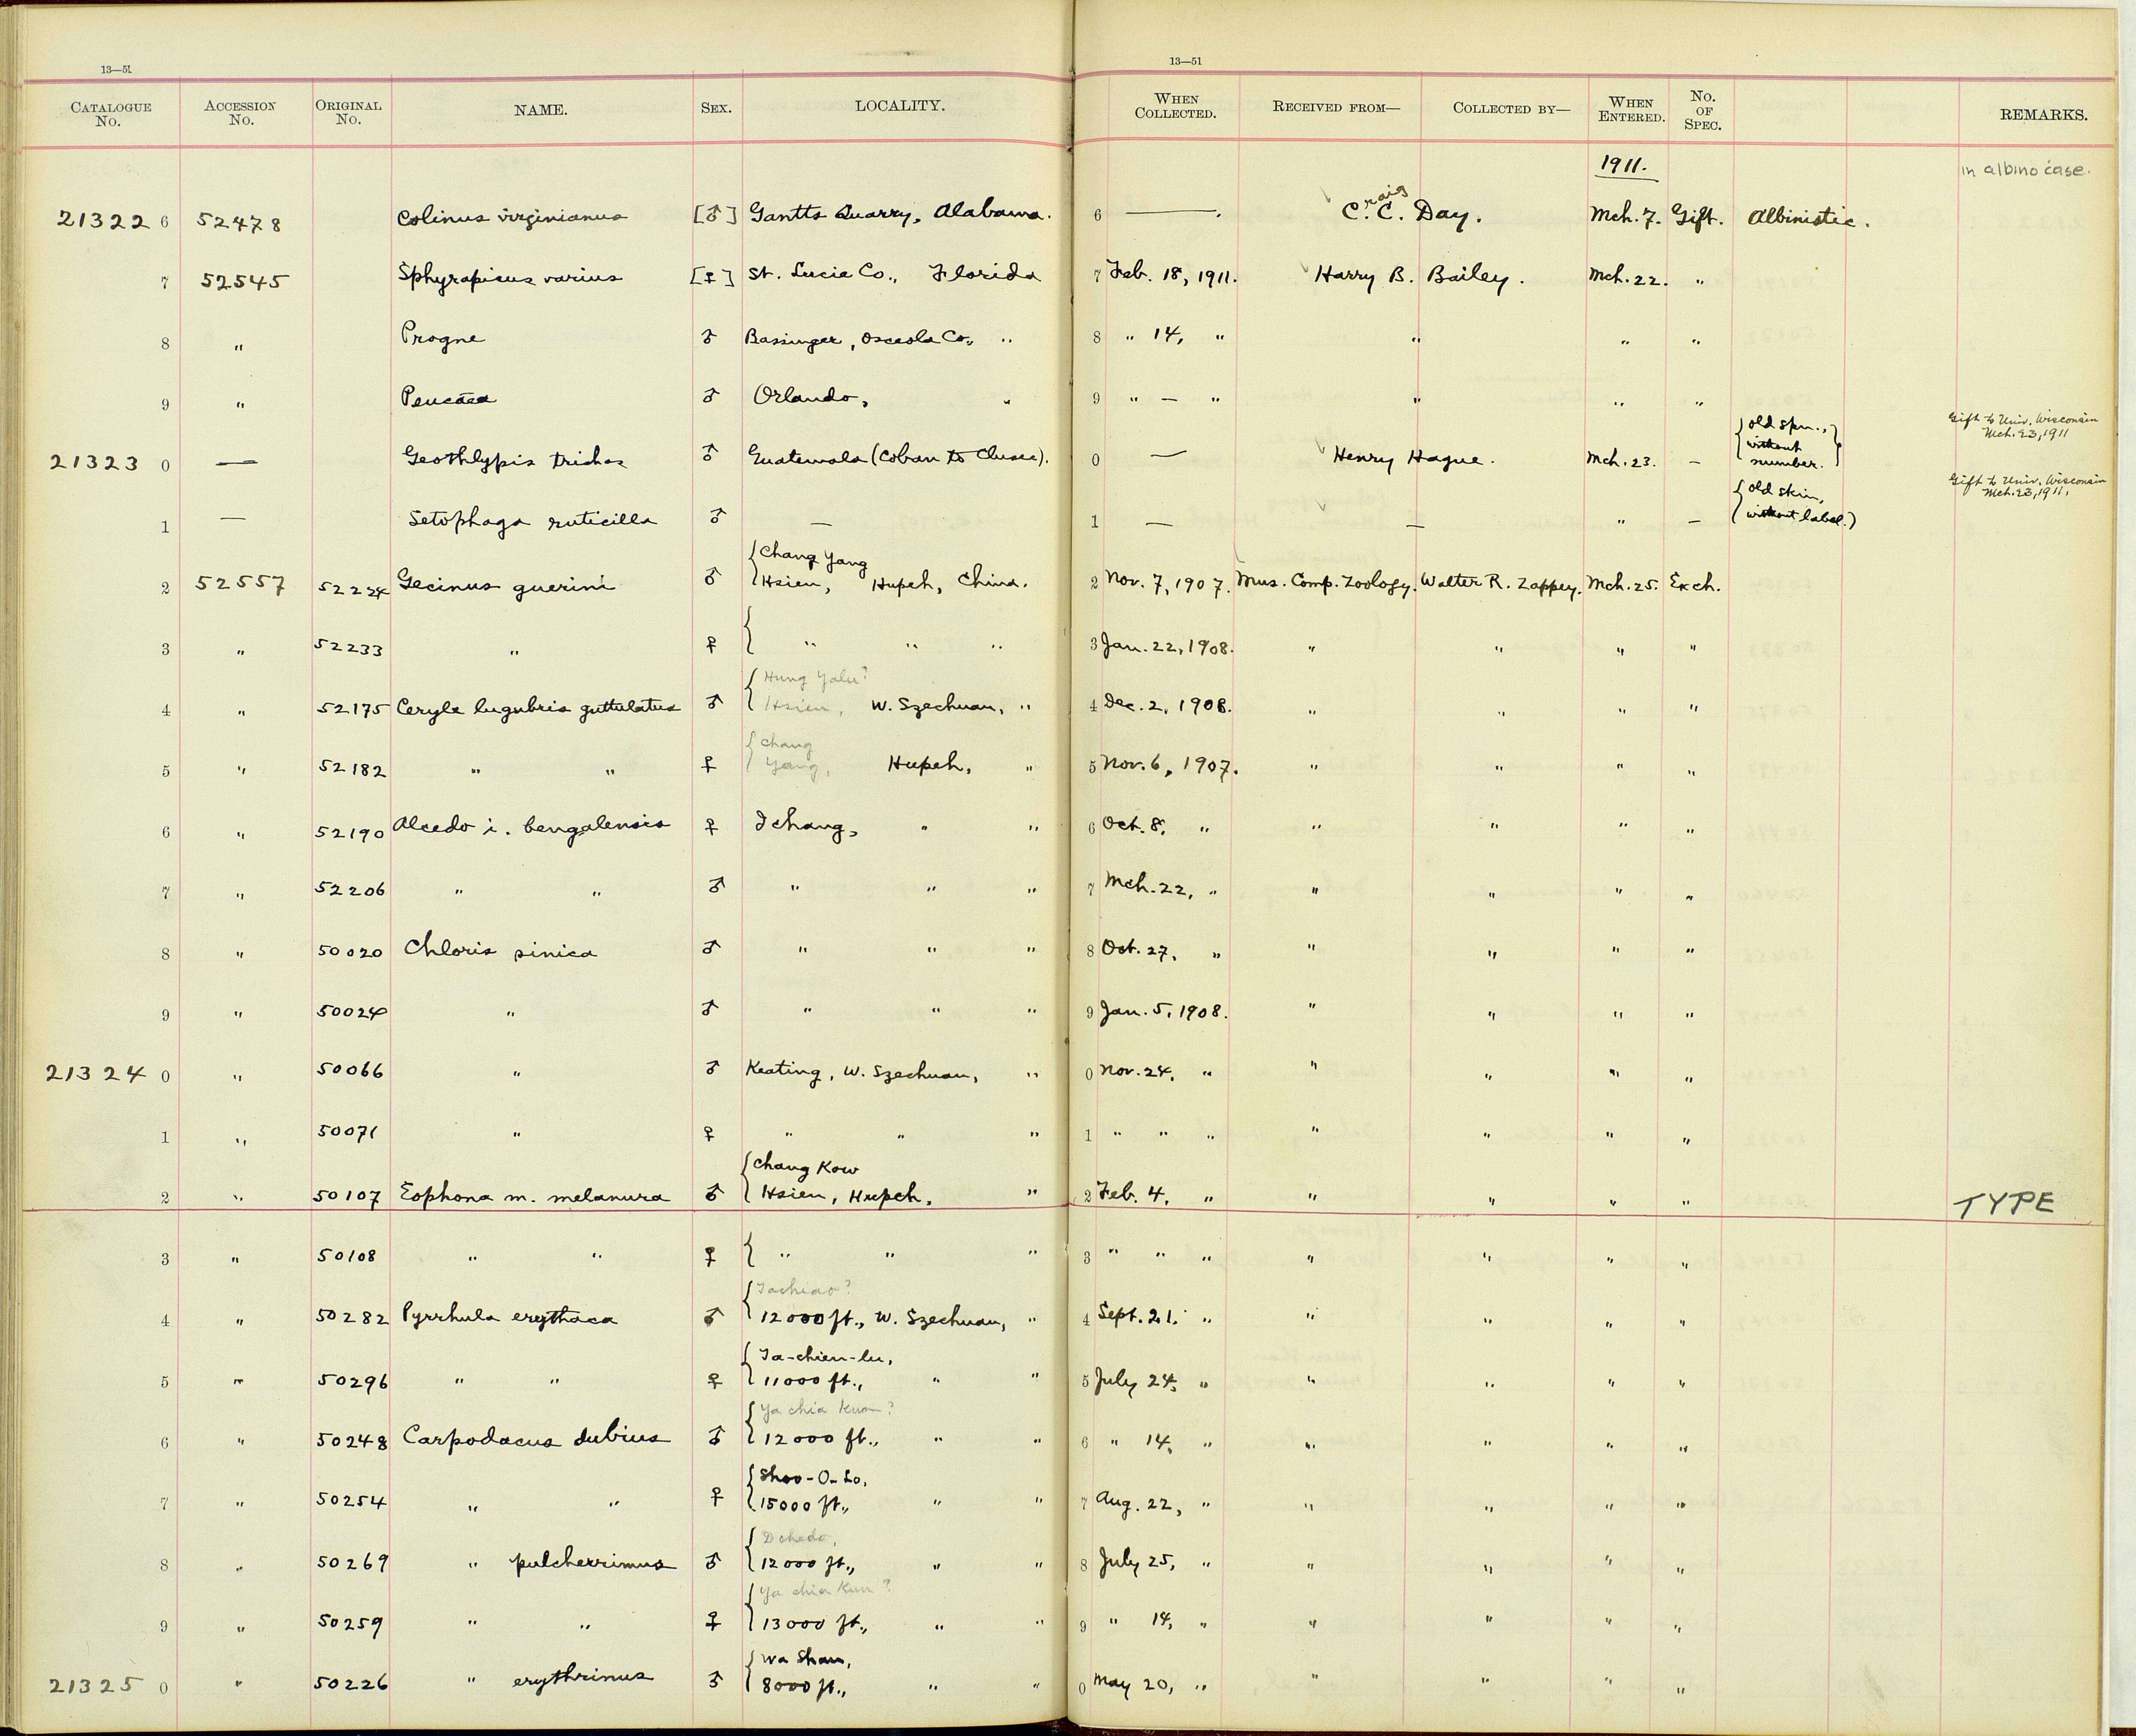 13—51 13—51
CATALOGUE No. ACCESSION No. ORIGINAL No. NAME. SEX. LOCALITY. WHEN COLLECTED. RECEIVED FROM— COLLECTED BY— WHEN ENTERED. No. OF SPEC. REMARKS.
1911. in albino case.
21322 6 52478 Colinus virginianus [♂] Gantts Quarry, Alabama. 6 — . C.raig C. Day. Mch. 7. Gift. Albinistic.
7 52545 Sphyrapicus varius [♀] St. Lucie Co., Florida 7 Feb. 18, 1911. Harry B. Bailey. Mch. 22. "
8 " Progne ♂ Bassinger, Osceola Co., " 8 " 14, " " " "
9 " Peucaea ♂ Orlando, " 9 " — " " " "
21323 0 — Geothlypis trichas ♂ Guatemala (Coban to Clusec). 0 — Henry Hague. Mch. 23. — {old spm., without number.} Gift to Univ. Wisconsin Mch. 23, 1911
1 — Setophaga ruticilla ♂ — 1 — — " — {old skin, without label.) Gift to Univ. Wisconsin Mch. 23, 1911.
2 52557 52224 Gecinus guerini ♂ {Chang Yang Hsien, Hupeh, China. 2 Nov. 7, 1907. Mus. Comp. Zoology. Walter R. Zappey. Mch. 25. Exch.
3 " 52233 " ♀ { " " " 3 Jan. 22, 1908. " " " "
4 " 52175 Ceryle lugubris guttulatus ♂ {Hung Yalu? Hsien, W. Szechuan, " 4 Dec. 2, 1908. " " " "
5 " 52182 " " ♀ {Chang Yang, Hupeh, " 5 Nov. 6, 1907. " " " "
6 " 52190 Alcedo i. bengalensis ♀ Ichang, " " 6 Oct. 8, " " " " "
7 " 52206 " " ♂ " " " 7 Mch. 22, " " " " "
8 " 50020 Chloris sinica ♂ " " " 8 Oct. 27, " " " " "
9 " 50024 " ♂ " " " 9 Jan. 5, 1908. " " " "
21324 0 " 50066 " ♂ Keating, W. Szechuan, " 0 Nov. 24, " " " " "
1 " 50071 " ♀ " " " 1 " " " " " " "
2 " 50107 Eophona m. melanura ♂ {Chang Kow Hsien, Hupeh, " 2 Feb. 4, " " " " " TYPE
3 " 50108 " " ♀ { " " " 3 " " " " " " "
4 " 50282 Pyrrhula erythaca ♂ {Tachiao? 12000 ft., W. Szechuan, " 4 Sept. 21. " " " " "
5 " 50296 " " ♀ {Ta-chien-lu, 11000 ft., " " 5 July 24, " " " " "
6 " 50248 Carpodacus dubius ♂ {Ya chia Kun? 12000 ft., " " 6 " 14, " " " " "
7 " 50254 " " ♀ {Shoo-O-Lo, 15000 ft., " " 7 Aug. 22, " " " " "
8 " 50269 " pulcherrimus ♂ {Dchedo, 12000 ft., " " 8 July 25, " " " " "
9 " 50259 " " ♀ {Ya chia Kun? 13000 ft., " " 9 " 14, " " " " "
21325 0 " 50226 " erythrinus ♂ {Wa Shan, 8000 ft., " " 0 May 20, " " " " "